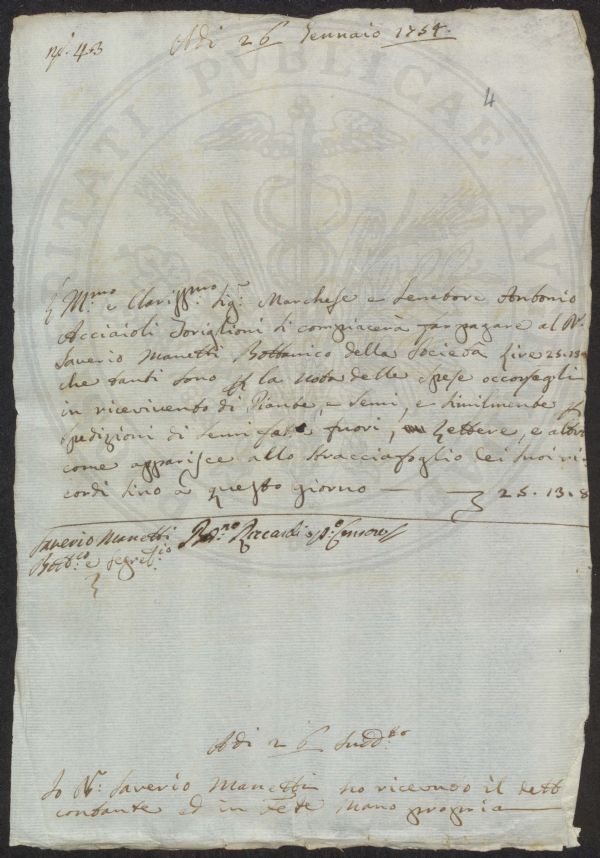 nº. 43
Adi 26 Gennaio 1754.
4
L' Illmo e Clarissmo Sigr Marchese e Senatore Antonio
Acciaioli Toriglioni si compiacerà far pagare al Dr.
Saverio Manetti Bottanico della Società Lire 25.13.8
che tanti sono p la nota delle spese occorsegli
in ricevimento di Piante, e Semi, e similmente p
spedizioni di Semi fatte fuori, Lettere, e altro
come apparisce allo stracciafoglio dei suoi ri
cordi sino a questo giorno — 25.13.8
Saverio Manetti
Bottco e Segreto
Adi 26 Sudd.to
Io Dr. Saverio Manetti ho ricevuto il dett
contante ed in fede mano propria
PUBLICAE